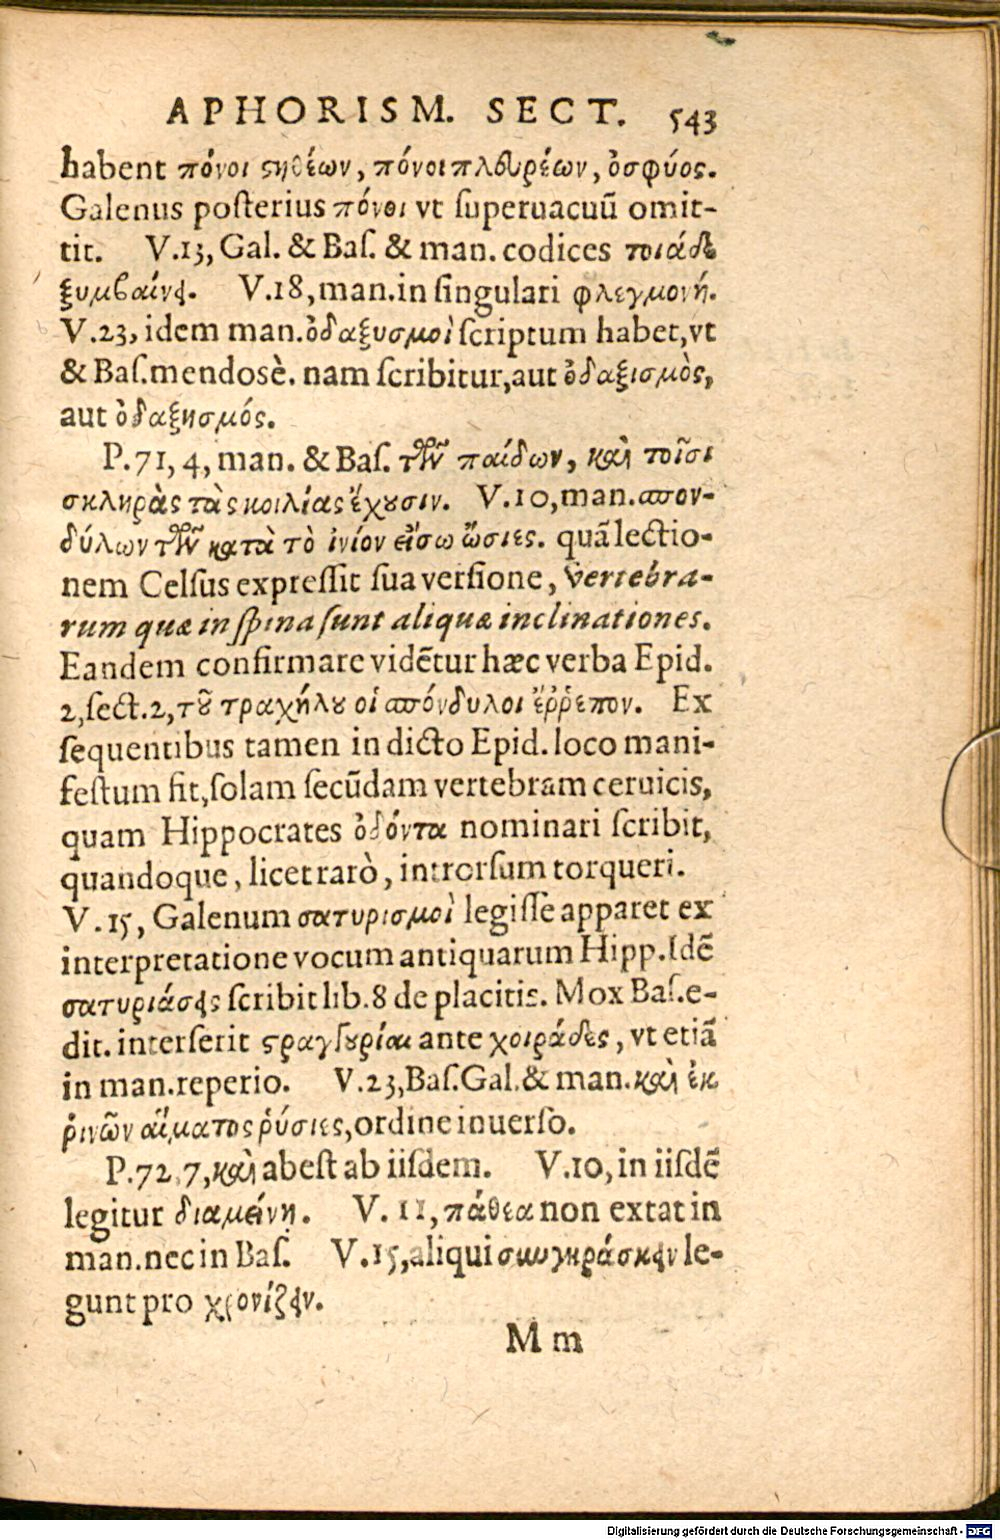 APHORISM. SECT. 543
habent πόνοι ϛηθέων, πόνοι πλευρέων, ὀσφύος.
Galenus poſterius πόνοι vt ſuperuacuũ omit-
tit. V.13, Gal. & Baſ. & man. codices τοιάδε
ξυμβαίνει. V.18, man. in ſingulari φλεγμονή.
V.23, idem man. ὀδαξυσμοὶ ſcriptum habet, vt
& Baſ. mendosè. nam ſcribitur, aut ὀδαξισμὸς,
aut ὀδαξησμός.
P.71, 4, man. & Baſ. τῶν παίδων, καὶ τοῖσι
σκληρὰς τὰς κοιλίας ἔχουσιν. V.10, man. σπον-
δύλων τῶν κατὰ τὸ ἰνίον εἴσω ὤσιες. quã lectio-
nem Celſus expreſſit ſua verſione, vertebra-
rum quæ in ſpina ſunt aliquæ inclinationes.
Eandem confirmare vidẽtur hæc verba Epid.
2, ſect.2, τοῦ τραχήλου οἱ σπόνδυλοι ἔῤῥεπον. Ex
ſequentibus tamen in dicto Epid. loco mani-
feſtum fit, ſolam ſecũdam vertebram ceruicis,
quam Hippocrates ὀδόντα nominari ſcribit,
quandoque, licet rarò, introrſum torqueri.
V.15, Galenum σατυρισμοὶ legiſſe apparet ex
interpretatione vocum antiquarum Hipp. Idẽ
σατυριάσεις ſcribit lib.8 de placitis. Mox Baſ. e-
dit. interſerit ϛραγγουρίαι ante χοιράδες, vt etiã
in man. reperio. V.23, Baſ. Gal. & man. καὶ ἐκ
ῥινῶν αἵματος ῥύσιες, ordine inuerſo.
P.72, 7, καὶ abeſt ab iiſdem. V.10, in iiſdẽ
legitur διαμείνῃ. V. 11, πάθεα non extat in
man. nec in Baſ. V.15, aliqui συγκηράσκειν le-
gunt pro χρονίζειν.
M m
Digitalisierung gefördert durch die Deutsche Forschungsgemeinschaft - DFG